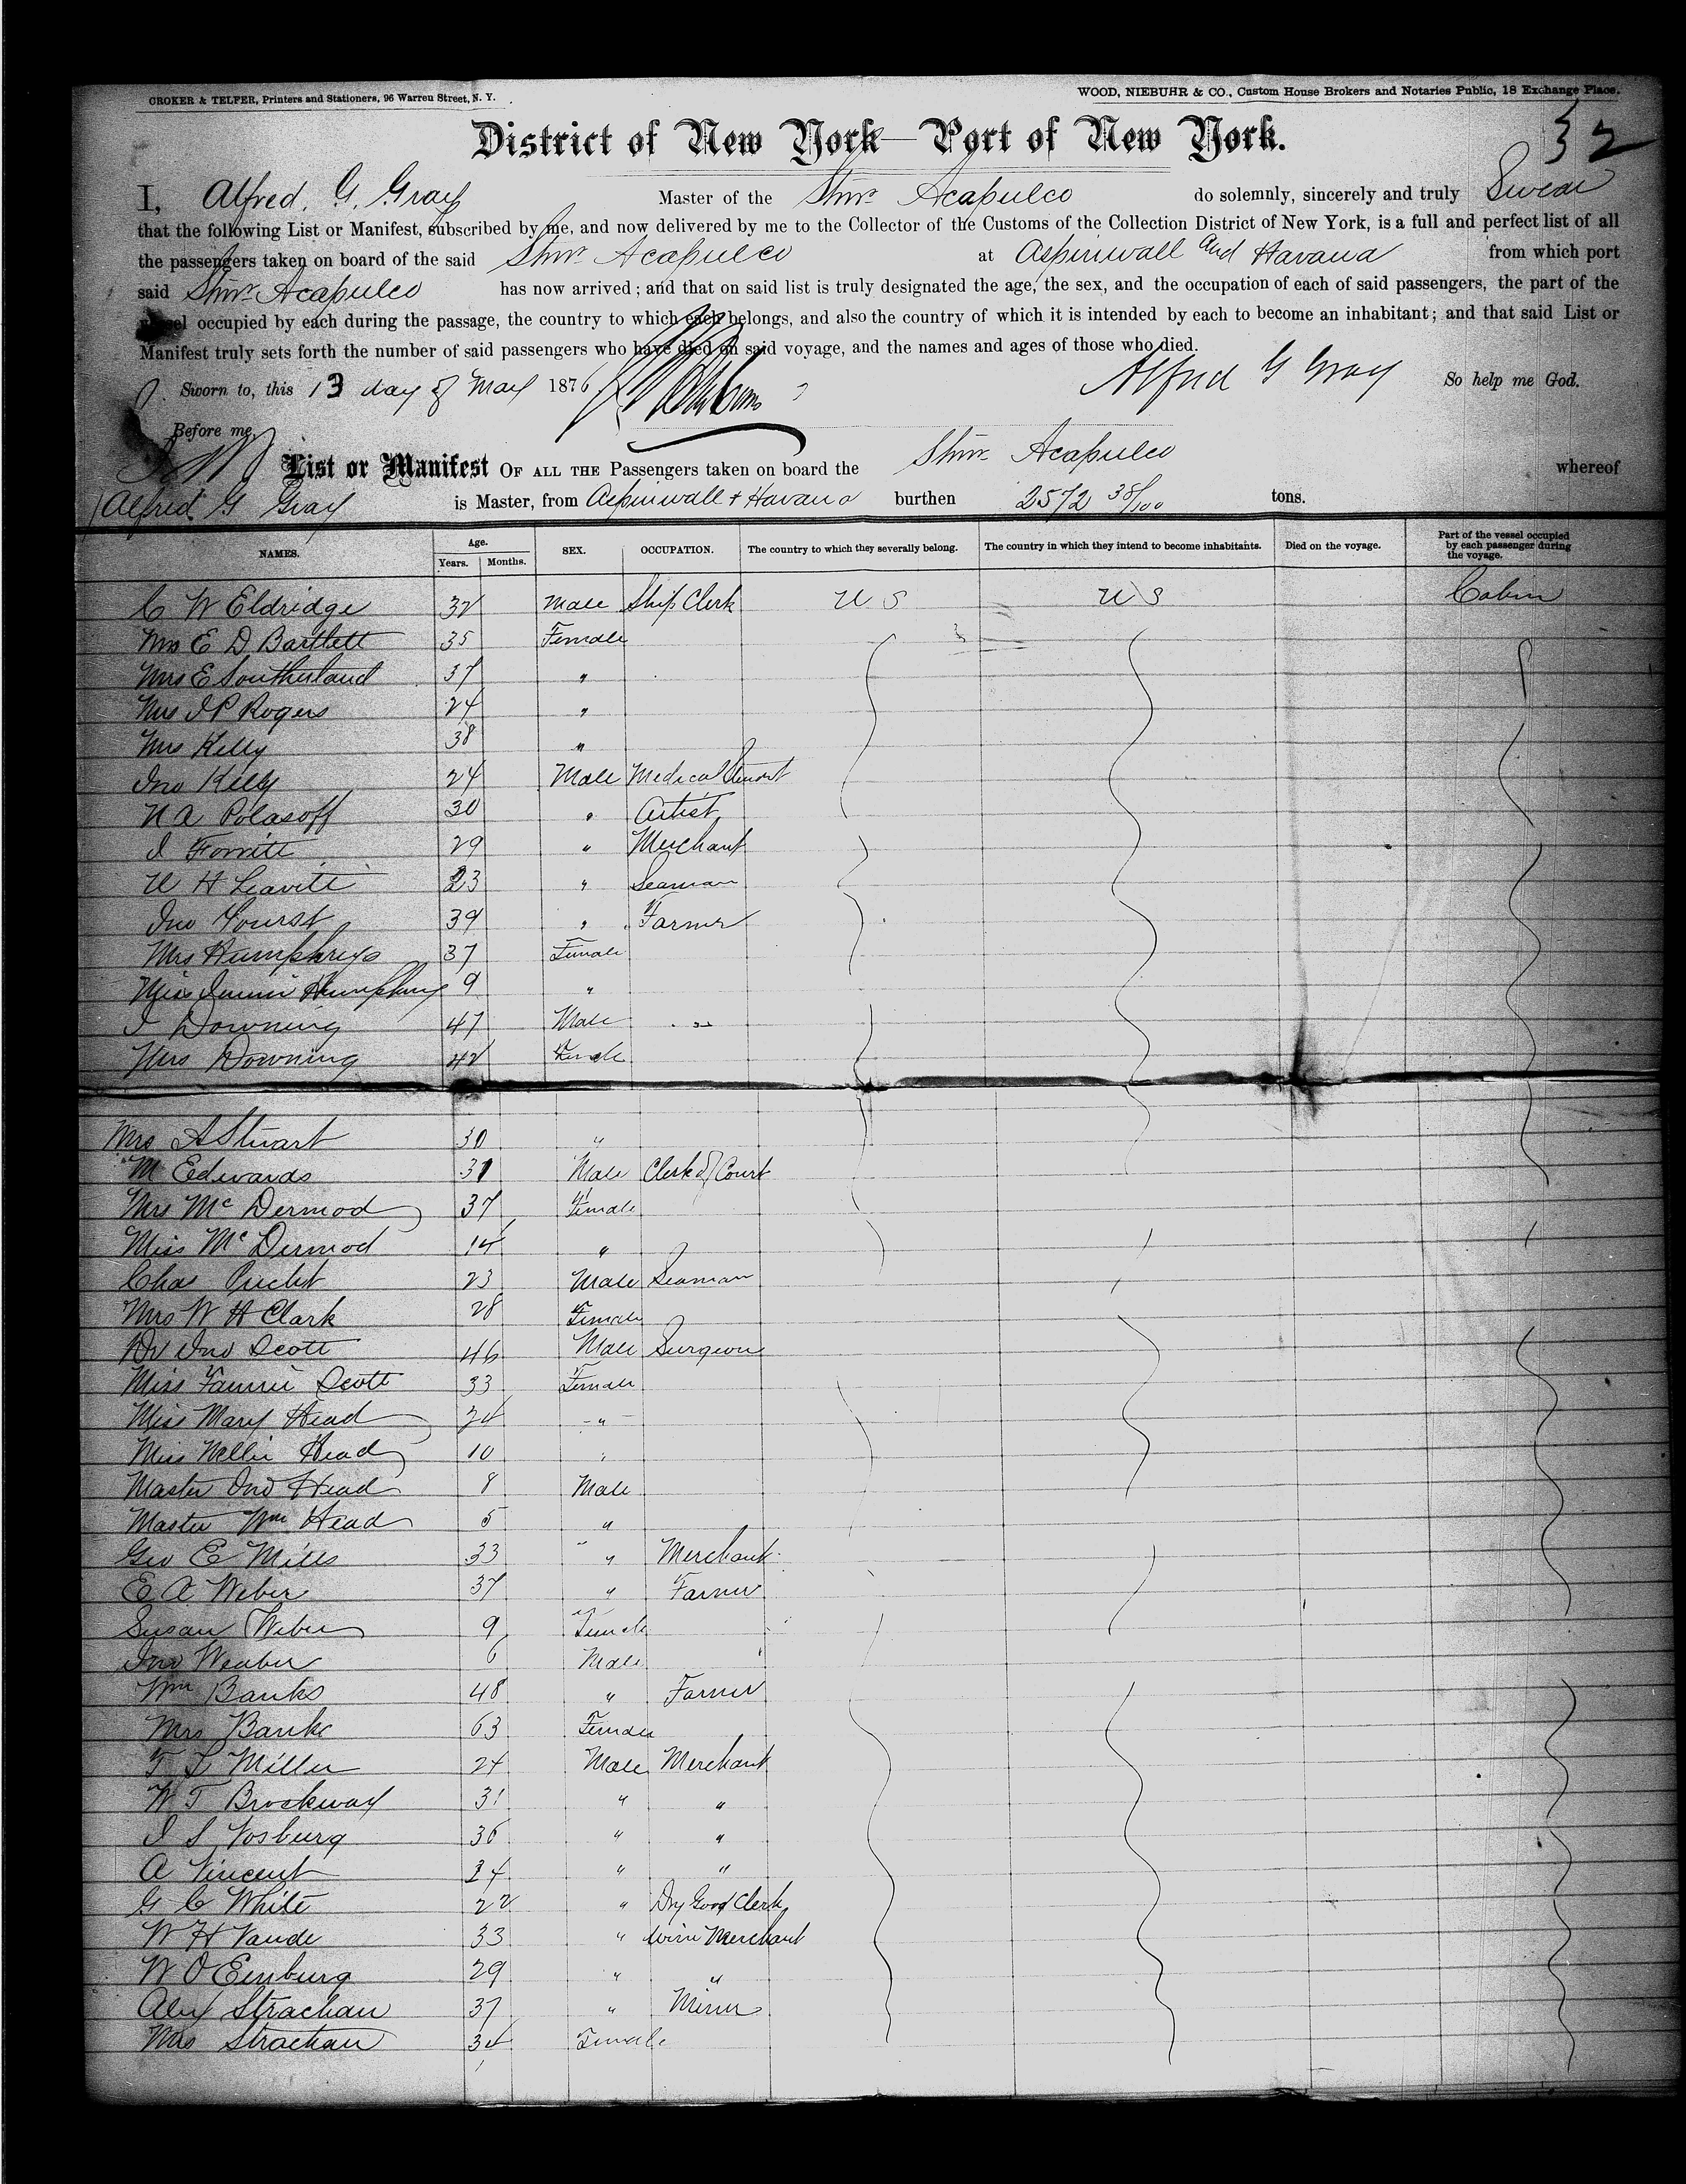 CROKER & TELFER, Printers and Stationers, 96 Warren Street, N. Y.
WOOD, NIEBUHR & CO., Custom House Brokers and Notaries Public, 18 Exchange Place.
32
District of New York—Port of New York.
I, Alfred. G. Gray Master of the Stmr Acapulco do solemnly, sincerely and truly Swear
that the following List or Manifest, subscribed by me, and now delivered by me to the Collector of the Customs of the Collection District of New York, is a full and perfect list of all
the passengers taken on board of the said Stmr Acapulco at Aspinwall and Havana from which port
said Stmr Acapulco has now arrived; and that on said list is truly designated the age, the sex, and the occupation of each of said passengers, the part of the
vessel occupied by each during the passage, the country to which each belongs, and also the country of which it is intended by each to become an inhabitant; and that said List or
Manifest truly sets forth the number of said passengers who have died on said voyage, and the names and ages of those who died.
Sworn to, this 13 day of May 1876 Alfred G Gray So help me God.
Before me,
List or Manifest OF ALL THE Passengers taken on board the Stmr Acapulco whereof
Alfred G Gray is Master, from Aspinwall + Havana burthen 2572 38/100 tons.
NAMES. Age. Years. Months. SEX. OCCUPATION. The country to which they severally belong. The country in which they intend to become inhabitants. Died on the voyage. Part of the vessel occupied by each passenger during the voyage.
C W Eldridge 32 Male Ship Clerk U S U S Cabin
Mrs E D Bartlett 35 Female
Mrs E Southerland 37 "
Mrs J P Rogers 24 "
Mrs Kelly 38 "
Jno Kelly 24 Male Medical Student
N A Polasoff 30 " Artist
J 29 " Merchant
W H Leavitt 23 " Seaman
Jno Yourst 39 " Farmer
Mrs Humphreys 37 Female
Miss Jennie Humphreys 9 "
J Downing 47 Male "
Mrs Downing 42 Female
Mrs A Stuart 30 "
M Edwards 31 Male Clerk of Court
Mrs McDermod 37 Female
Miss McDermod 14 "
Chas 23 Male Seaman
Mrs W H Clark 28 Female
Dr Jno Scott 46 Male Surgeon
Miss Fannie Scott 33 Female
Miss Mary Head 24 "
Miss Nellie Head 10 "
Master Jno Head 8 Male
Master Wm Head 5 "
Geo E Mills 33 " Merchant
E A Weber 37 " Farmer
Susan Weber 9 Female
Jno Weaber 6 Male
Wm Banks 48 " Farmer
Mrs Banks 63 Female
T L Miller 24 Male Merchant
W T Brockway 31 " "
J S Vosburg 36 " "
A Vincent 34 " "
G C White 22 " Dry Good Clerk
W H Vande 33 " Wine Merchant
W O Eenburg 29 " "
Alex Strachan 37 " Miner
Mrs Strachan 34 Female